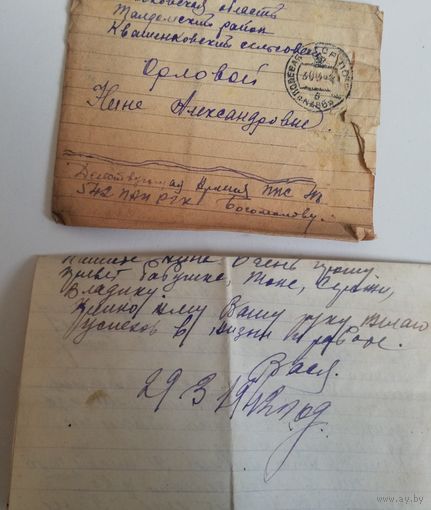 область
Талдомский район
Квашенковский сельсовет
Орловой
Нине Александровне.
Действующая Армия ППС №
542 ПАП РГК Богомолову.
Нина. Очень прошу
Привет бабушке, Тоне, Сереже,
Владику.
Крепко жму Вашу руку желаю
успехов в жизни и работе.
Вася.
29 3 1942 год.
www.ay.by